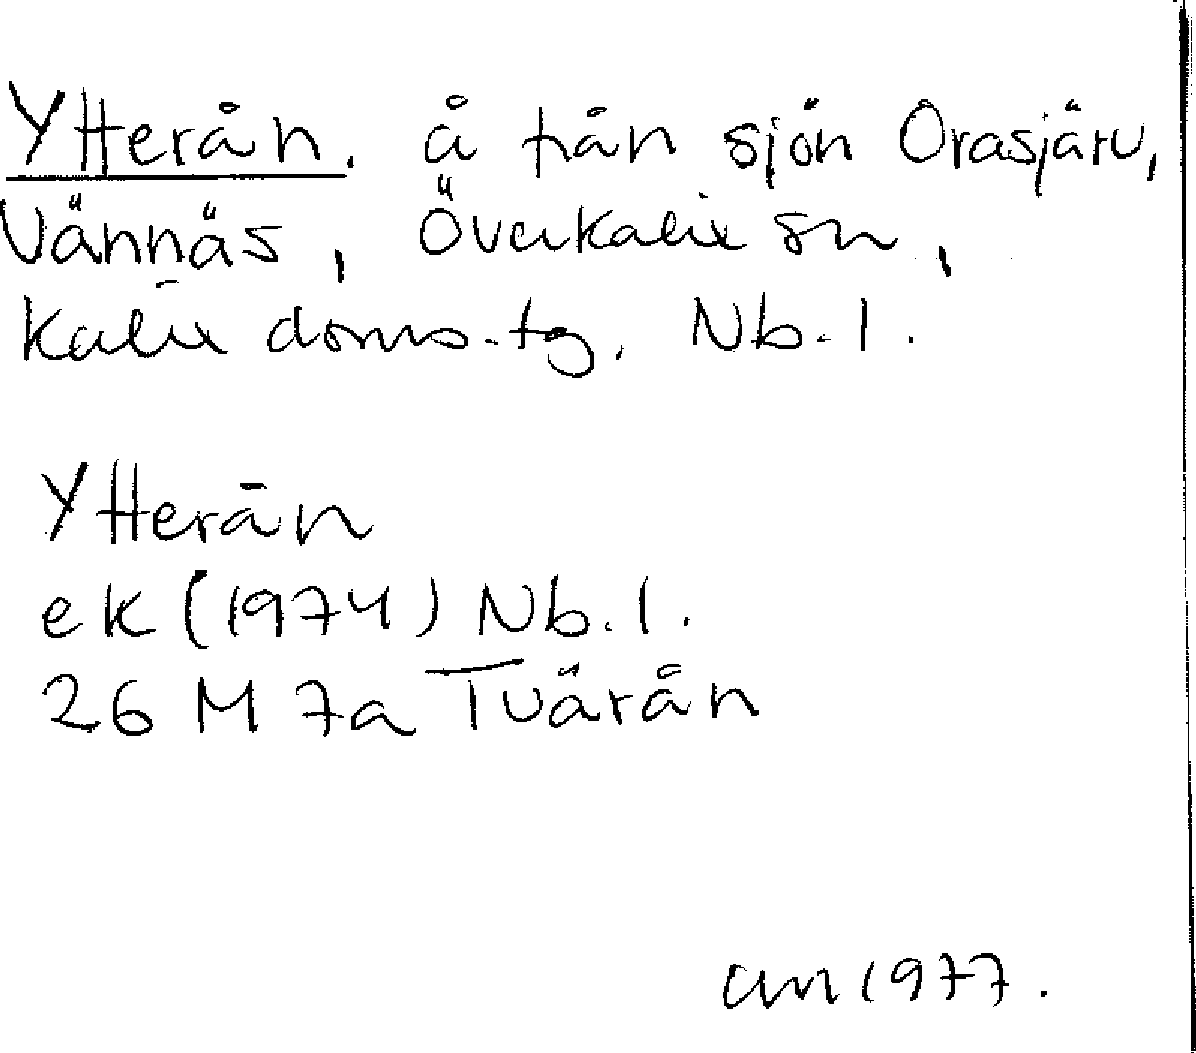 Ytterån. å från sjön Orasjärv,
Vännäs, Överkalix sn,
Kalix doms.tg. Nb.l.
Ytterån
ek (1974) Nb.l.
26 M 7a Tvärån
1977.